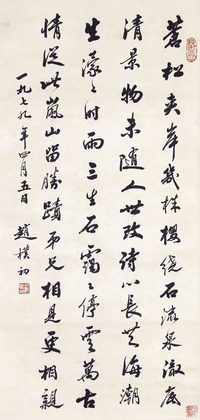 蒼松夾岸幾株櫻繞石流泉澈底
清景物未隨人世改詩心長共海潮
生濛〻時雨三生石靄〻停雲萬古
情從此嵐山留勝蹟弟兄相見更相親
一九七九年四月五日 趙樸初